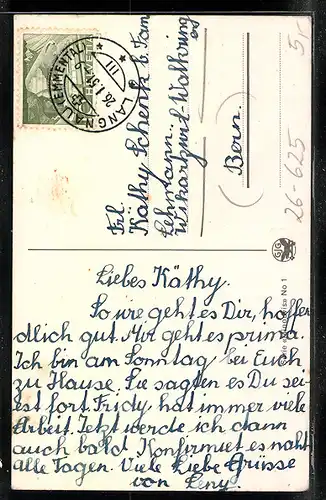 LANGNAU (EMMENTAL)
III
26.I.51
Frl.
Käthy Schenk b. Fam
Lehmann
Wikartswil-Walkringen
Bern.
26-625
5,-
Liebes Käthy.
So wie geht es Dir, hoffen
dlich gut. Mir geht es prima.
Ich bin am Sonntag bei Euch
zu Hause. Sie sagten es Du sei-
est fort. Fridy hat immer viele
Arbeit. Jetzt werde ich dann
auch bald Konfirmiert es naht
alle Tagen. Viele Liebe Grüsse
von Leny.
No 1